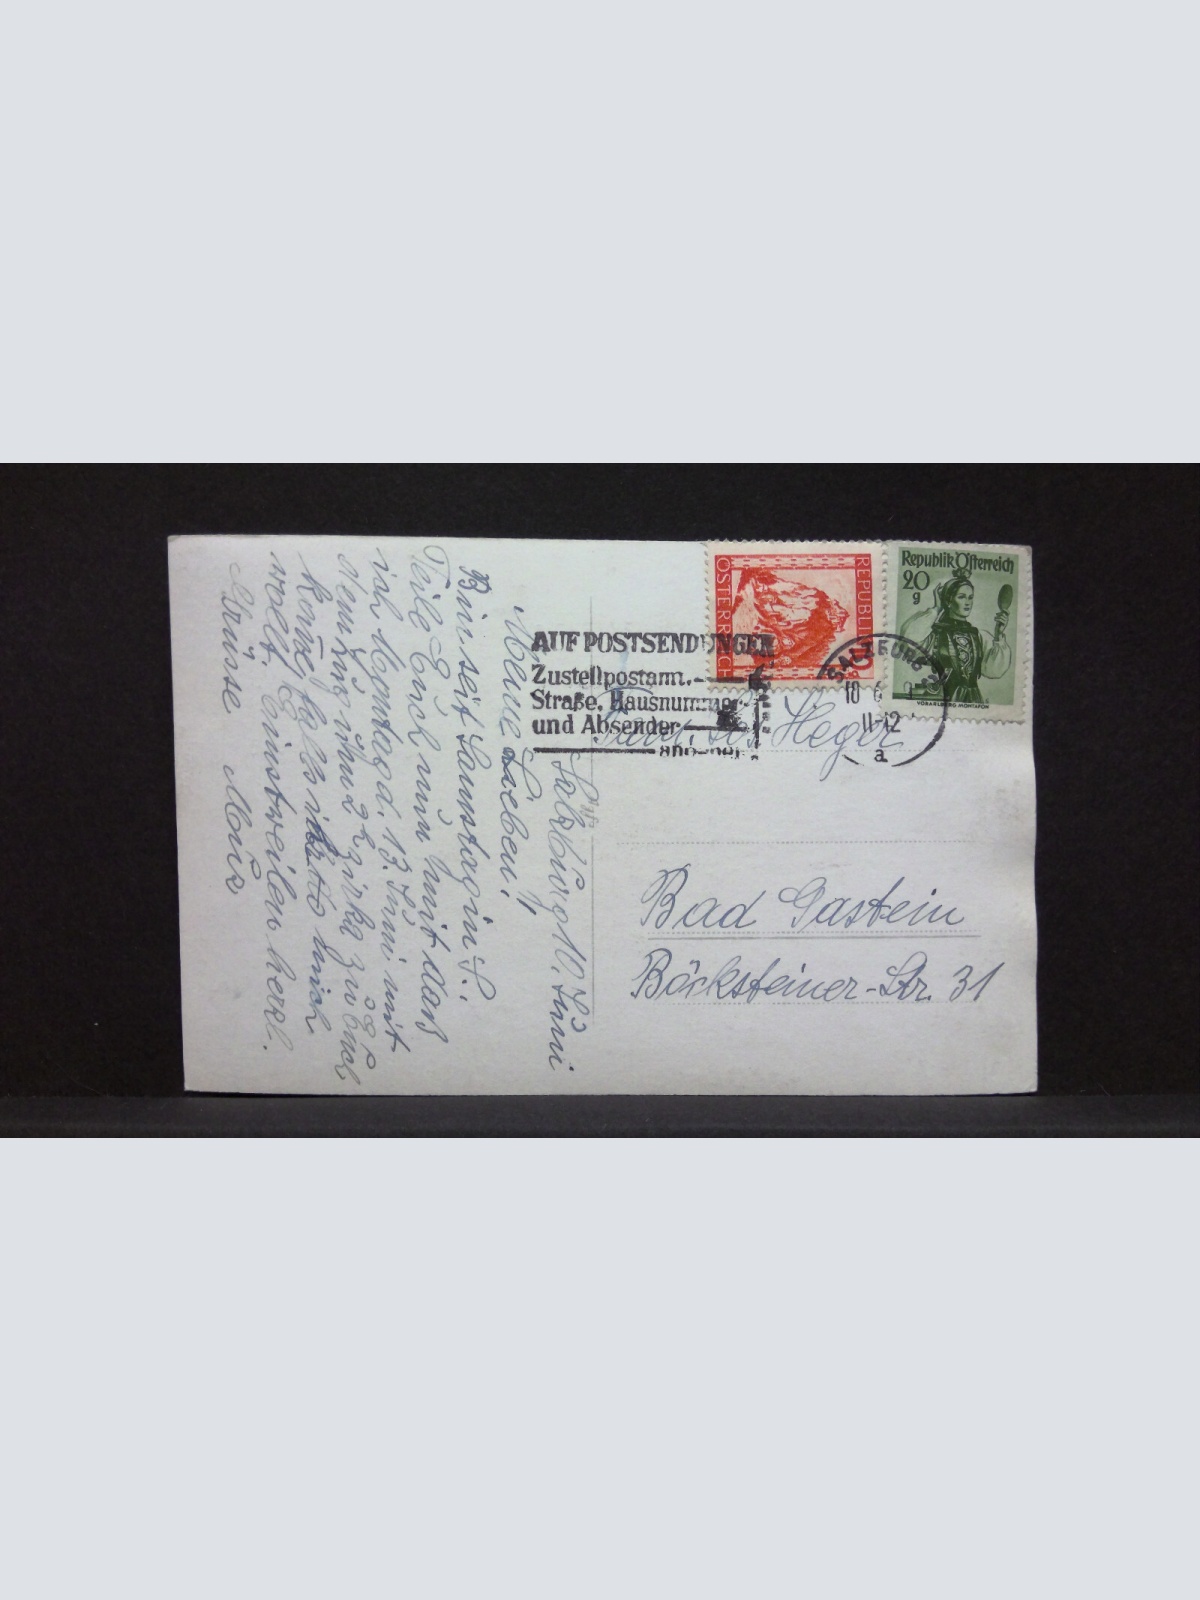 Salzburg 10. Juni
Meine Lieben!
Bin seit Samstag in S.
Teile Euch nun mit daß
ich Montag d. 13. Juni mit
dem Zug 2 zirka zu Euch
komme falls ihr mich
wollt. Einstweilen herzl.
Grüsse
REPUBLIK
ÖSTERREICH
Republik Österreich
20
g
VORARLBERG MONTAFON
AUF POSTSENDUNGEN
Zustellpostamt,
Straße, Hausnummer
und Absender
angeben
SALZBURG 2
10 6
11-12
a
Heger
Bad Gastein
Böcksteiner-Str. 31